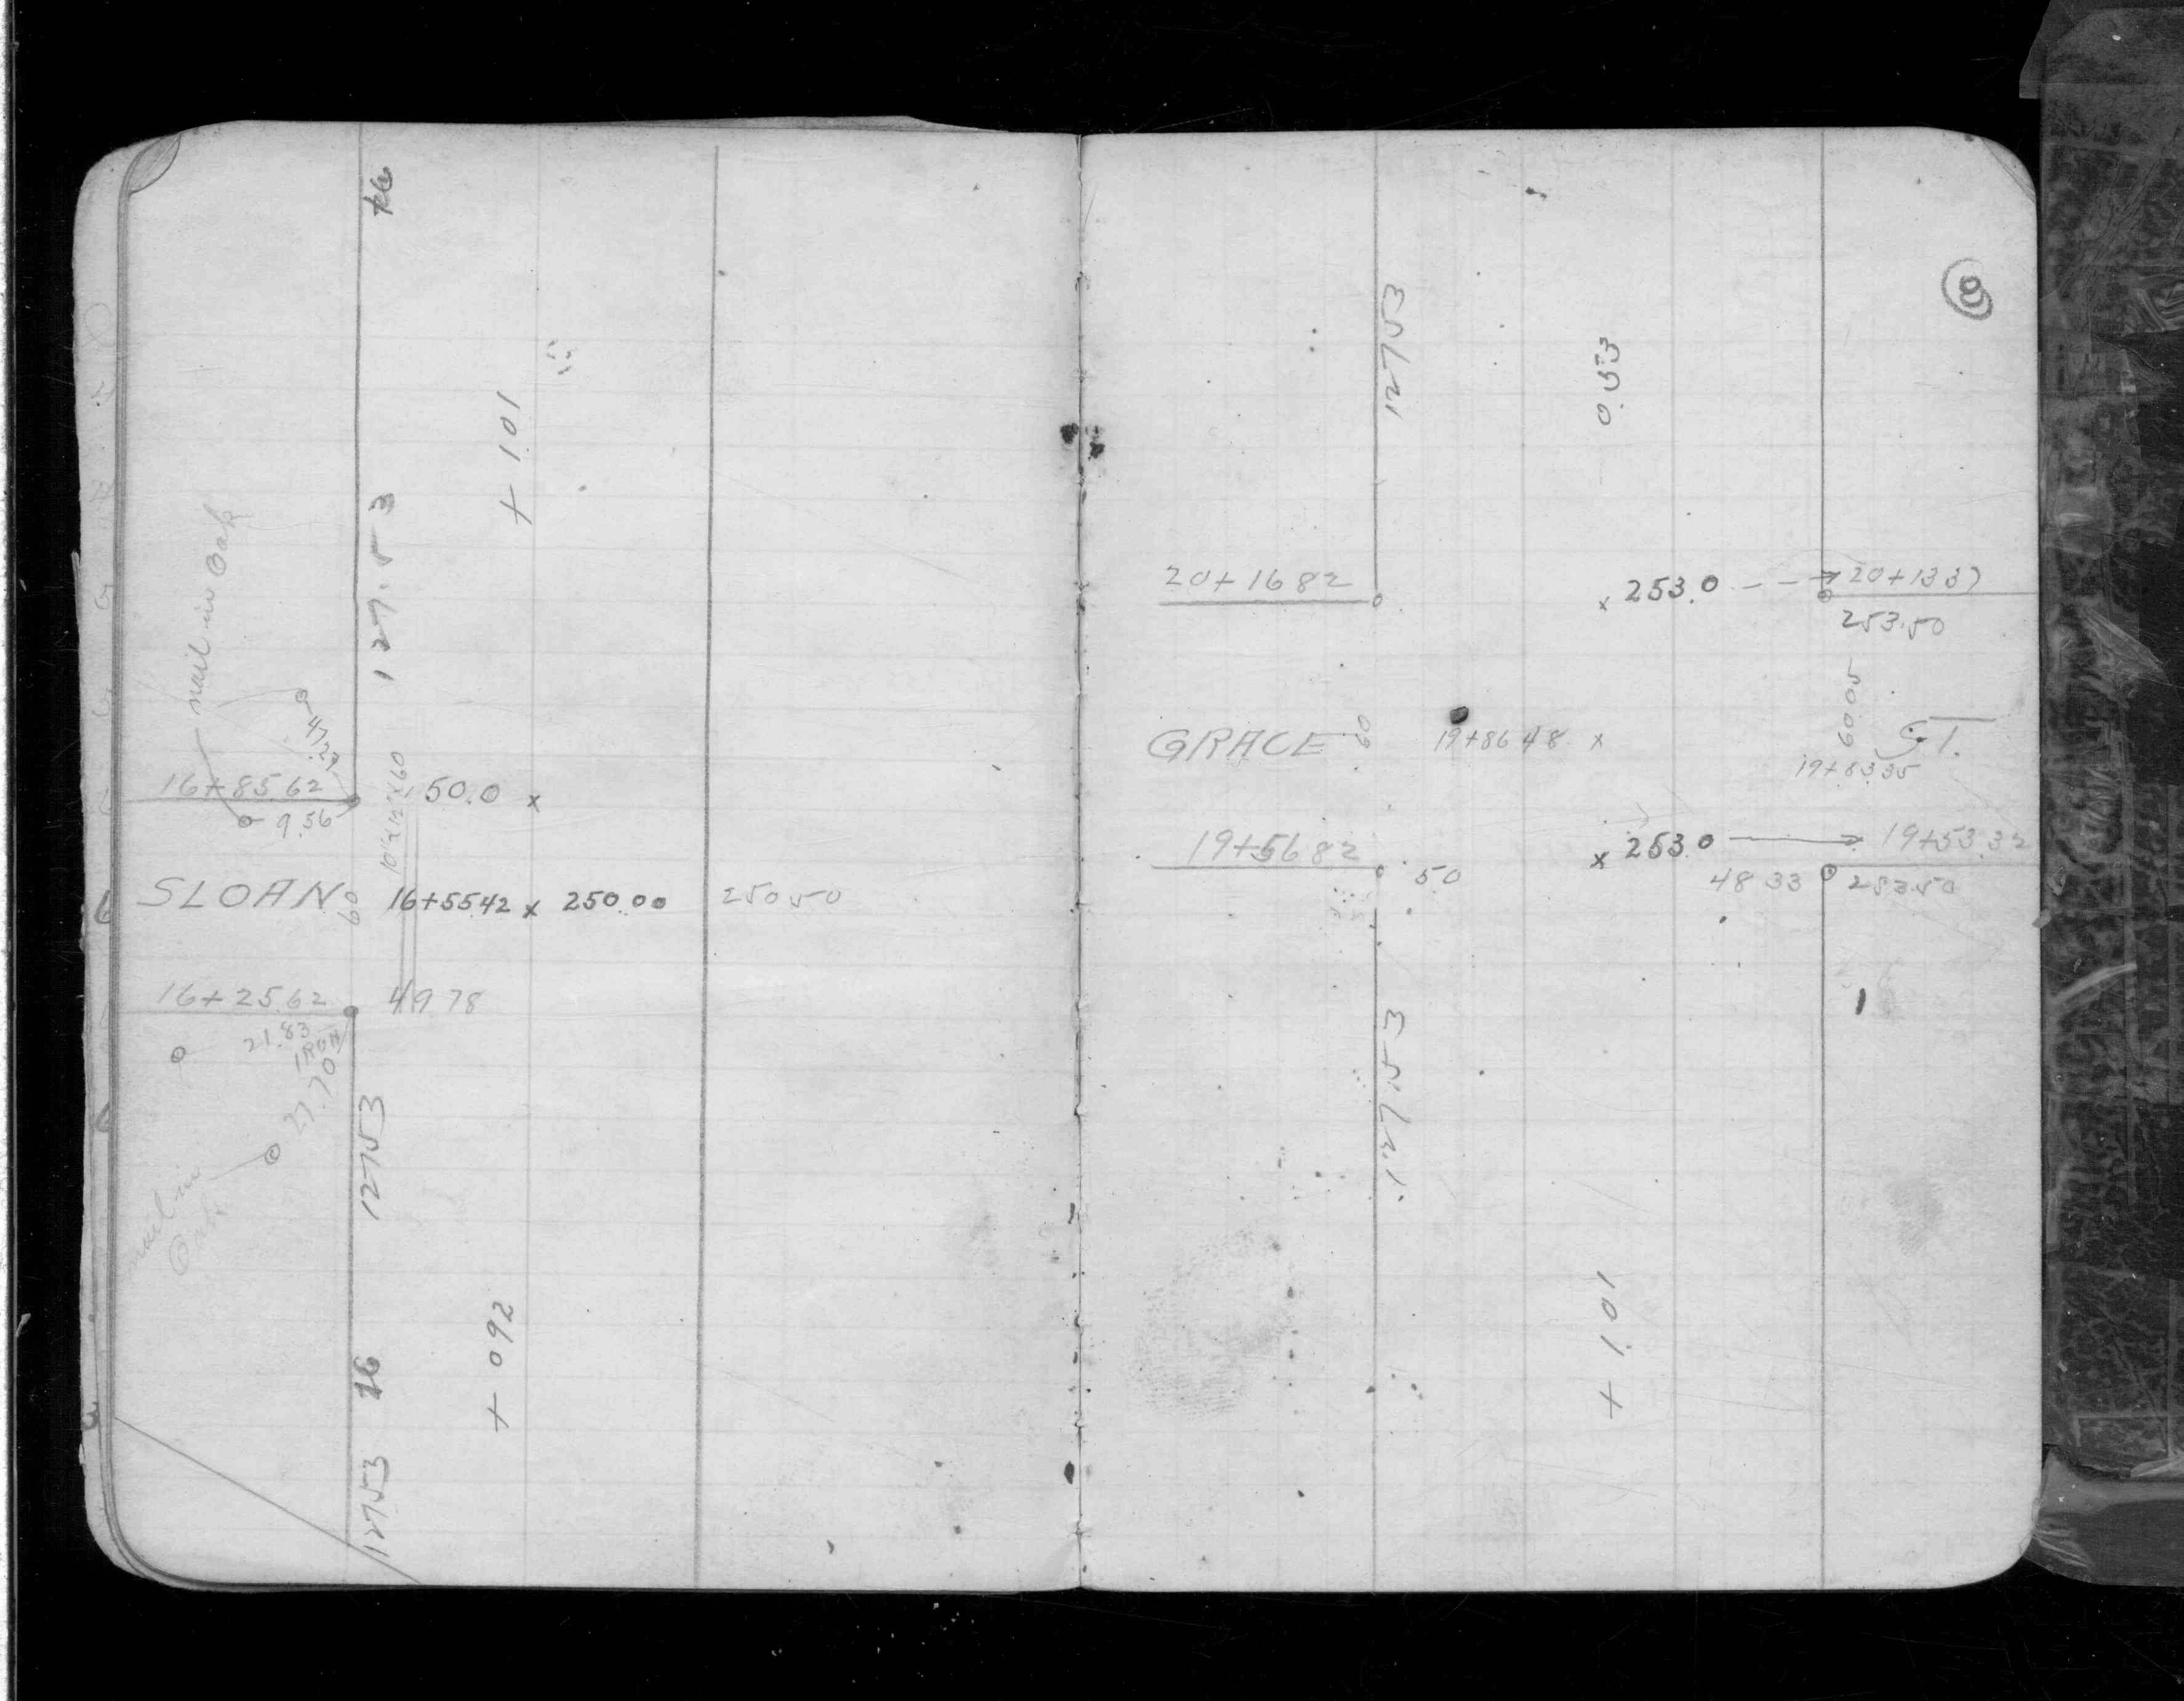 16
+ 1.01
127.53
nail in Oak
16+85.62
50.0 x
9.56
SLOAN
60
16+55.42 x 250.00
250.50
16+25.62
49.78
21.83
IRON
27.70
nail in
Oak
127.53
+ 0.92
16
127.53
8
127.53
0.53
20+16.82
x 253.0
20+13.37
253.50
GRACE
60
19+86.48 x
60.05
ST.
19+83.35
19+56.82
50
x 253.0
19+53.32
48.33
253.50
127.53
+ 1.01